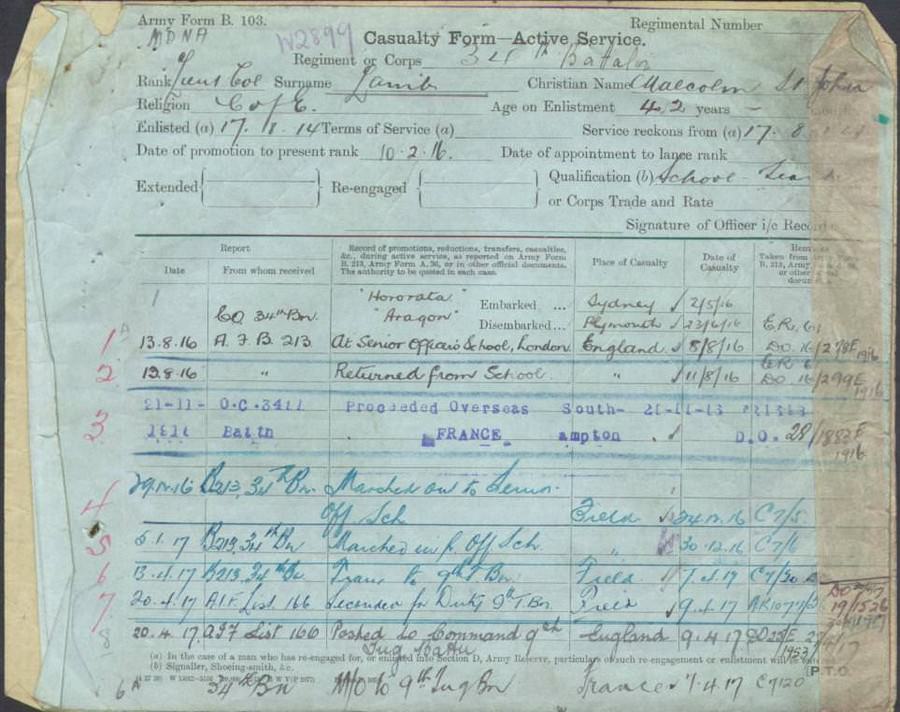 Army Form B. 103.
Regimental Number
MDNA
W2899
Casualty Form—Active Service.
Regiment or Corps 34th Battalion
Rank Lieut Col Surname Lamb Christian Name Malcolm St John
Religion C of E. Age on Enlistment 42 years —
Enlisted (a) 17. 8. 14 Terms of Service (a) Service reckons from (a) 17. 8.
Date of promotion to present rank 10.2.16. Date of appointment to lance rank
Extended Re-engaged Qualification (b) School
or Corps Trade and Rate
Signature of Officer i/c
Report
Date From whom received
Record of promotions, reductions, transfers, casualties, &c., during active service, as reported on Army Form B. 213, Army Form A. 36, or in other official documents. The authority to be quoted in each case.
Place of Casualty
Date of Casualty
Taken from
B. 213, Army
or other
1 "Hororata" Embarked ... Sydney 2/5/16
CO 34th Bn "Aragon" Disembarked ... Plymouth 23/6/16
1A 13.8.16 A.F.B. 213 At Senior Officers School, London England 5/8/16 D.O. 16/278E 1916
2 13.8.16 " Returned from School. " 11/8/16 D.O. 16/299E 1916
3 21-11- O.C. Proceeded Overseas South-
Battn FRANCE ampton D.O. 28/1883E 1916
4 B213, 34th Bn. Marched out to Senior
Off. Sch Field C7/5
5 5.1.17 B213, 34th Bn Marched in fr. Off Sch. " 30.12.16 C7/6
6 13.4.17 B213 34th Bn Trans to 9th T Bn. Field 7.4.17 C7/20
7 20.4.17 A.I.F. List 166 Seconded for Duty 9th T. Bn. Field 9.4.17
8 20.4.17 AIF List 166 Posted to Command 9th England 9.4.17
(a) In the case of a man who has re-engaged for, or enlisted into Section D, Army Reserve, particulars of such re-engagement or enlistment will be
(b) Signaller, Shoeing-smith, &c.
[P.T.O.
6A 34th Bn M/O to 9th Trg Bn France 7.4.17 C7/20